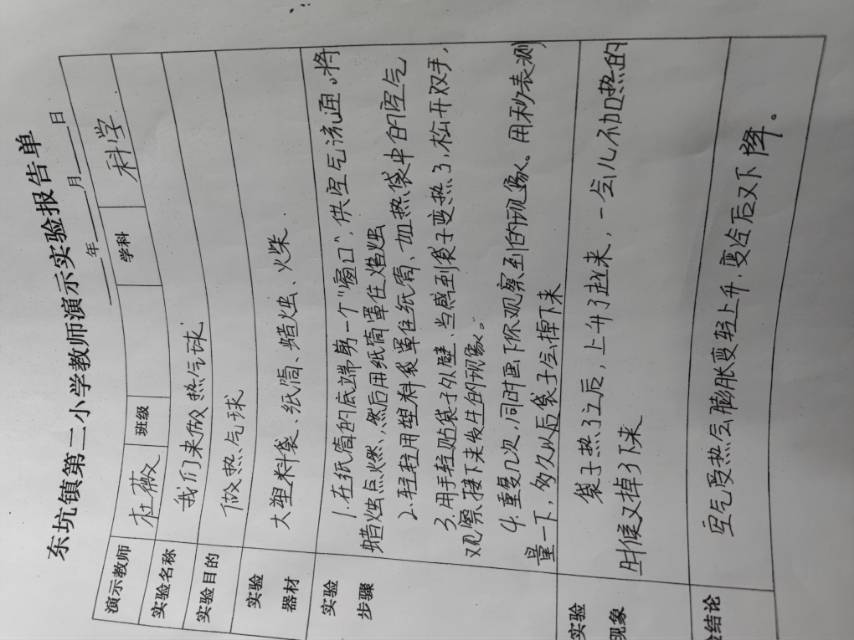 东坑镇第二小学教师演示实验报告单
年 月 日
演示教师 杜薇 班级 学科 科学
实验名称 我们来做热气球
实验目的 做热气球
实验器材 大塑料袋、纸筒、蜡烛、火柴.
实验步骤
1.在纸筒的底端剪一个"窗口",供空气流通。将
蜡烛点燃,然后用纸筒罩住蜡烛
2.轻轻用塑料袋罩住纸筒、加热袋中的空气
3.用手轻贴袋子外壁、当感到袋子变热了,松开双手,
观察接下来发生的现象。
4.重复几次,同时画下你观察到的现象。用秒表测
量一下,多久以后袋子会掉下来
实验现象
袋子热了之后,上升了起来,一会儿不加热的
时候又掉了下来
结论
空气受热会膨胀变轻上升,变冷后又下降。